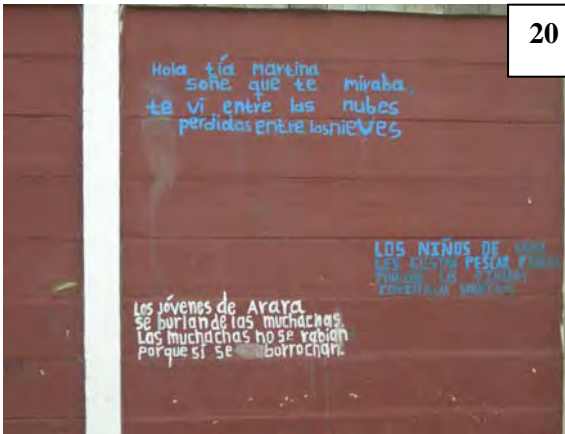 20
Hola tía Martina
soñe que te miraba,
te vi entre las nubes
perdidas entre las nieves
LOS NIÑOS DE
LES GUSTA PESCAR
PORQUE LAS
Los jóvenes de Arara
se burlan de las muchachas.
Las muchachas no se rabian
porque si se borrochan.